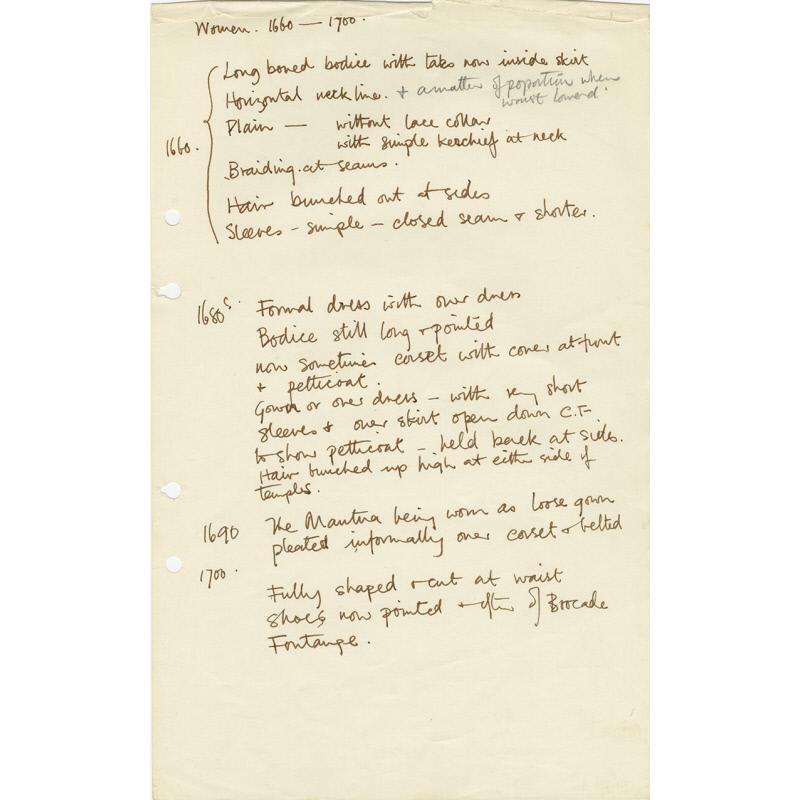 Women. 1660 — 1700.
Long boned bodice with tabs now inside skirt
Horizontal neckline. + a matter of poportion when
waist lowered.
Plain — without lace collar
1660. with simple kerchief at neck
Braiding at seams.
Hair bunched out at sides
Sleeves - simple - closed seam & shorter.
1680s. Formal dress with over dress
Bodice still long & pointed
now sometimes corset with cover at front
+ petticoat.
Gown or over dress - with very short
sleeves & over skirt open down C.F.
to show petticoat - held back at sides.
Hair bunched up high at either side of
temples.
1690 The Mantua being worn as loose gown
pleated informally over corset & belted
1700. Fully shaped & cut at waist
shoes now pointed & often of Brocade
Fontange.